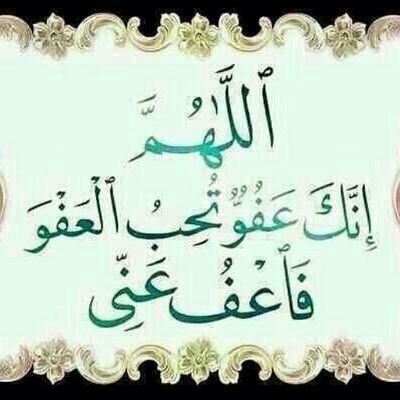 ٱللَّٰهُمَّ
إِنَّكَ عَفُوٌّ تُحِبُ ٱلْعَفْوَ
فَٱعْفُ عَنِّي